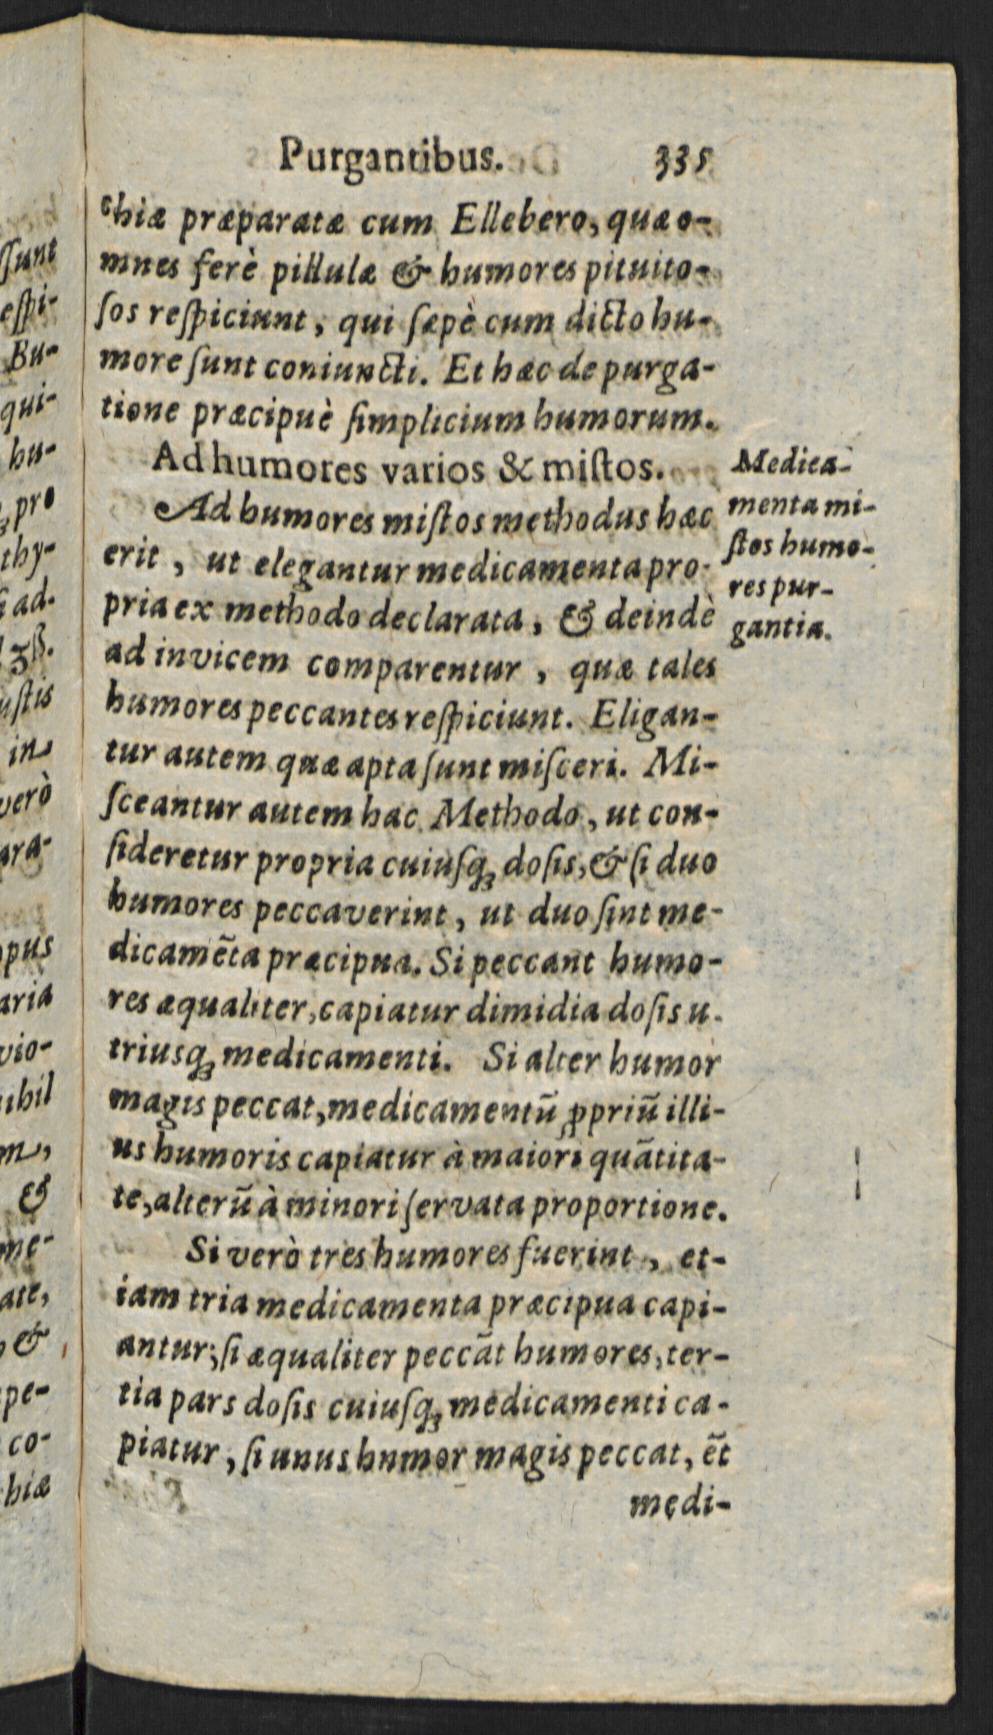 Purgantibus. 335
chiæ præparatæ cum Ellebero, quæ o-
mnes ferè pillulæ & humores pituito-
ſos reſpiciunt, qui ſæpè cum dicto hu-
more ſunt coniuncti. Et hæc de purga-
tione præcipuè ſimplicium humorum.
Ad humores varios & miſtos.
Ad humores miſtos methodus hæc
erit, ut elegantur medicamenta pro-
pria ex methodo declarata, & deindè
ad invicem comparentur, quæ tales
humores peccantes reſpiciunt. Eligan-
tur autem quæ apta ſunt miſceri. Mi-
ſceantur autem hac Methodo, ut con-
ſideretur propria cuiuſq; doſis, & ſi duo
humores peccaverint, ut duo ſint me-
dicamẽta præcipua. Si peccant humo-
res æqualiter, capiatur dimidia doſis u-
triusq; medicamenti. Si alter humor
magis peccat, medicamentũ ꝓpriũ illi-
us humoris capiatur à maiori quãtita-
te, alterũ à minori ſervata proportione.
Si verò tres humores fuerint, et-
iam tria medicamenta præcipua capi-
antur; ſi æqualiter peccãt humores, ter-
tia pars doſis cuiuſq; medicamenti ca-
piatur, ſi unus humor magis peccat, ẽt
medi-
Medica-
menta mi-
ſtos humo-
res pur-
gantia.
ſſunt
eſpi-
Bu-
qui-
hu-
pro
thy-
ad.
ʒß.
uſtis
in
verò
ara-
opus
aria
vio-
nihil
m,
&
me-
ate,
&
pe-
co-
hiæ